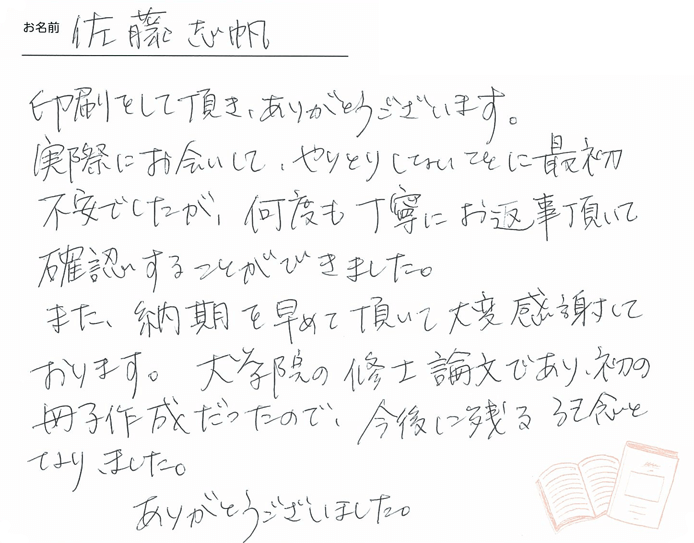 お名前 佐藤 志帆
印刷をして頂き、ありがとうございます。
実際にお会いして、やりとりしないことに最初
不安でしたが、何度も丁寧にお返事頂いて
確認することができました。
また、納期を早めて頂いて大変感謝して
おります。大学院の修士論文であり、初の
冊子作成だったので、今後に残る記念と
なりました。
ありがとうございました。